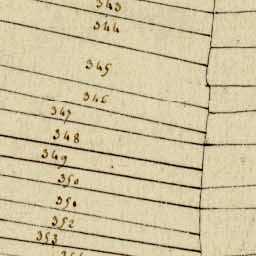 343
344
345
346
347
348
349
350
351
352
353